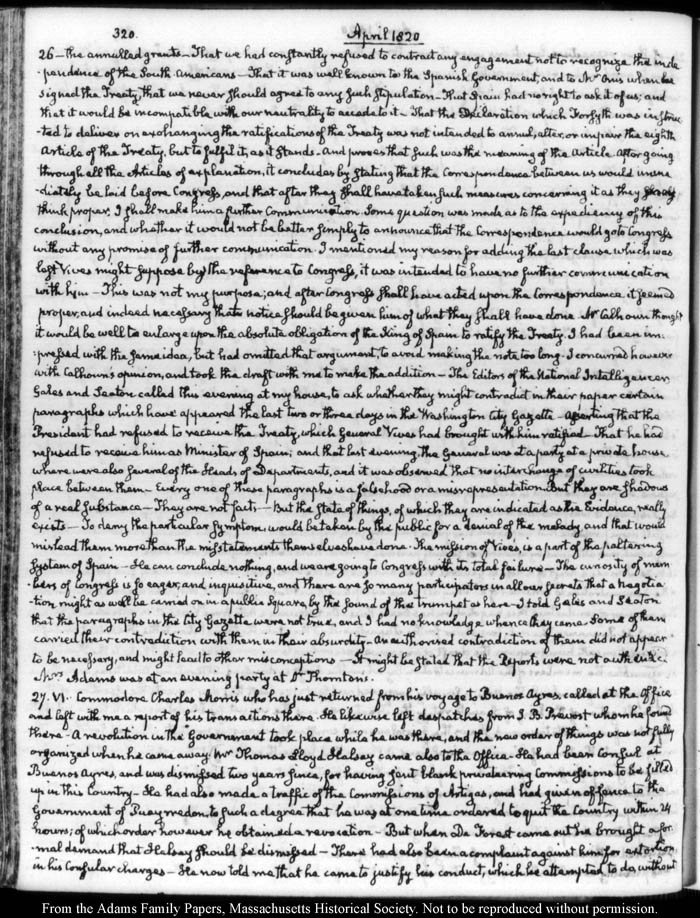 320.
April 1820
26 — the annulled grants — That we had constantly refused to contract any engagement not to recognize the inde
-pendence of the South-Americans — That it was well known to the Spanish Government, and to Mr Onis when he
signed the Treaty, that we never should agree to any such stipulation — That Spain had no right to ask it of us; and
that it would be incompatible with our neutrality to accede to it — That the Declaration which Forsyth was instruc
-ted to deliver on exchanging the ratifications of the Treaty was not intended to annul, alter, or impair the eighth
Article of the Treaty, but to fulfil it, as it stands — And proves that such was the meaning of the Article. After going
through all the Articles of explanation, it concludes by stating that the Correspondence between us would imme
-diately be laid before Congress, and that after they shall have taken such measures concerning it as they
think proper, I shall make him a further Communication. Some question was made as to the expediency of this
conclusion, and whether it would not be better simply to announce that the Correspondence would go to Congress
without any promise of further communication. I mentioned my reason for adding the last clause, which was
lest Vives might suppose by the reference to Congress, it was intended to have no further communication
with him — This was not my purpose; and after Congress shall have acted upon the Correspondence, it seemed
proper, and indeed necessary that notice should be given him of what they shall have done. Mr Calhoun thought
it would be well to enlarge upon the absolute obligation of the King of Spain to ratify the Treaty. I had been im-
pressed with the same idea, but had omitted that argument, to avoid making the note too long. I concurred however
with Calhoun's opinion, and took the draft with me to make the addition — The Editors of the National Intelligencer,
Gales and Seaton called this evening at my house, to ask whether they might contradict in their paper certain
paragraphs which have appeared the last two or three days in the Washington City Gazette — asserting that the
President had refused to receive the Treaty, which General Vives had brought with him ratified — That he had
refused to receive him as Minister of Spain; and that last evening the General was at a party at a private house
where were also several of the Heads of Departments, and it was observed that no interchange of civilities took
place between them — Every one of these paragraphs is a falsehood or a misrepresentation. But they are shadows
of a real substance — They are not facts — But the state of things, of which they are indicated as the evidence, really
exists — To deny the particular symptom, would be taken by the public for a denial of the malady, and that would
mislead them more than the misstatements themselves have done. The mission of Vives, is a part of the paltering
System of Spain — He can conclude nothing, and we are going to Congress with its total failure — The curiosity of mem
-bers of Congress is so eager, and inquisitive, and there are so many participators in all our secrets that a negotia
-tion might as well be carried on in a public Square, by the sound of the trumpet as here — I told Gales and Seaton
that the paragraphs in the City Gazette were not true, and I had no knowledge whence they came. Some of them
carried their contradiction with them in their absurdity. An authorised contradiction of them did not appear
to be necessary, and might lead to other misconceptions — It might be stated that the Reports were not authentic.
Mrs Adams was at an evening party at Dr Thornton's.
27. VI. Commodore Charles Morris who has just returned from his voyage to Buenos Ayres, called at the Office
and left with me a report of his transactions there. He likewise left despatches from J. B. Prevost whom he found
there — A revolution in the Government took place while he was there, and the new order of things was not fully
organized when he came away. Mr Thomas Lloyd Halsey came also to the Office — He had been Consul at
Buenos Ayres, and was dismissed two years since, for having sent blank privateering Commissions to be filled
up in this Country — He had also made a traffic of the Commissions of Artigas, and had given offence to the
Government of Pueyrredon, to such a degree that he was at one time ordered to quit the Country within 24
hours; of which order however he obtained a revocation — But when De Forest came out he brought a for
-mal demand that Halsey should be dismissed — There had also been a complaint against him for extortion
in his Consular charges — He now told me that he came to justify his conduct, which he attempted to do, without
From the Adams Family Papers, Massachusetts Historical Society. Not to be reproduced without permission.